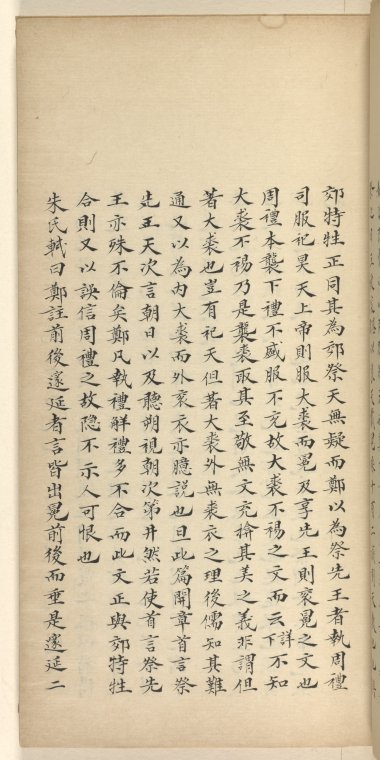 郊特牲正同其為郊祭天無疑而鄭以為祭先王者執周禮
司服祀昊天上帝則服大裘而冕及享先王則衮冕之文也
周禮本襲下禮不盛服不充故大裘不裼之文而云詳下不知
大裘不裼乃是襲裘取其至敬無文充揜其美之義非謂但
著大裘也豈有祀天但著大裘外無裘衣之理後儒知其難
通又以為內大裘而外衮衣亦臆說也且此篇開章首言祭
先王天次言朝日以及聽朔視朝次第井然若使首言祭先
王亦殊不倫矣鄭凡執禮解禮多不合而此文正與郊特牲
合則又以誤信周禮之故隐不示人可恨也
朱氏軾曰鄭註前後邃延者言皆出冕前後而垂是邃延二